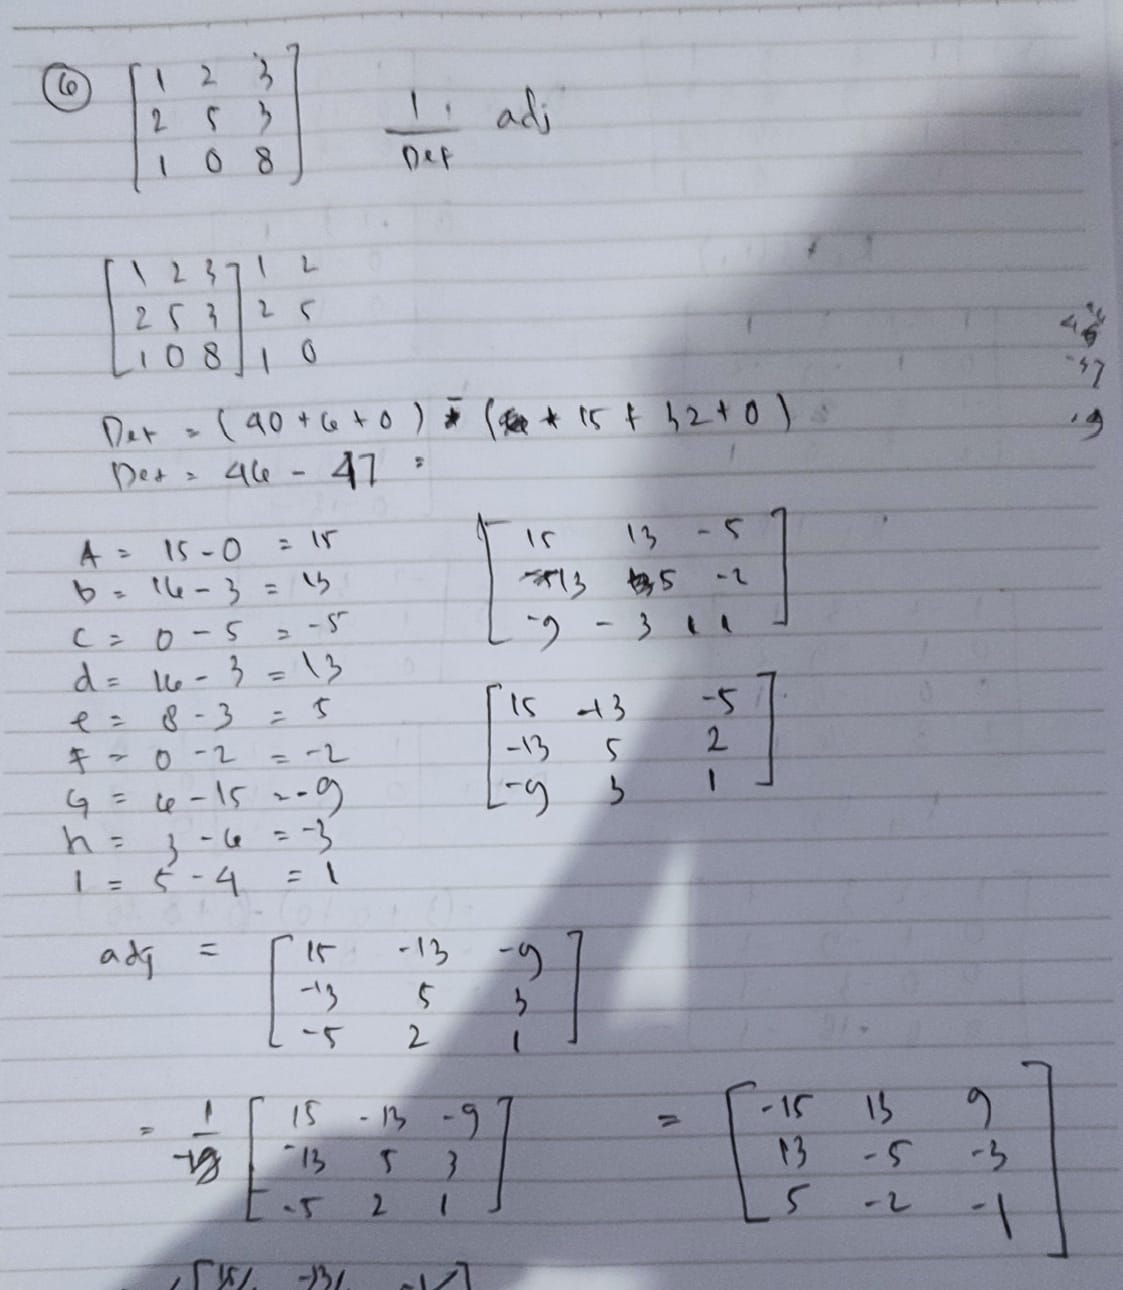 6 [1 2 3
2 5 3
1 0 8] 1/Det . adj
[1 2 3] 1 2
[2 5 3] 2 5
[1 0 8] 1 0
Det = (40 + 6 + 0) - (15 + 32 + 0)
Det = 46 - 47 =
46
-47
A = 15 - 0 = 15
b = 16 - 3 = 13
c = 0 - 5 = -5
d = 16 - 3 = 13
e = 8 - 3 = 5
f = 0 - 2 = -2
G = 6 - 15 = -9
h = 3 - 6 = -3
I = 5 - 4 = 1
[15 13 -5
13 5 -2
-9 -3 1]
[15 -13 -5
-13 5 2
-9 3 1]
adj = [15 -13 -9
-13 5 3
-5 2 1]
= 1/ [15 -13 -9
-13 5 3
-5 2 1] = [-15 13 9
13 -5 -3
5 -2 -1]